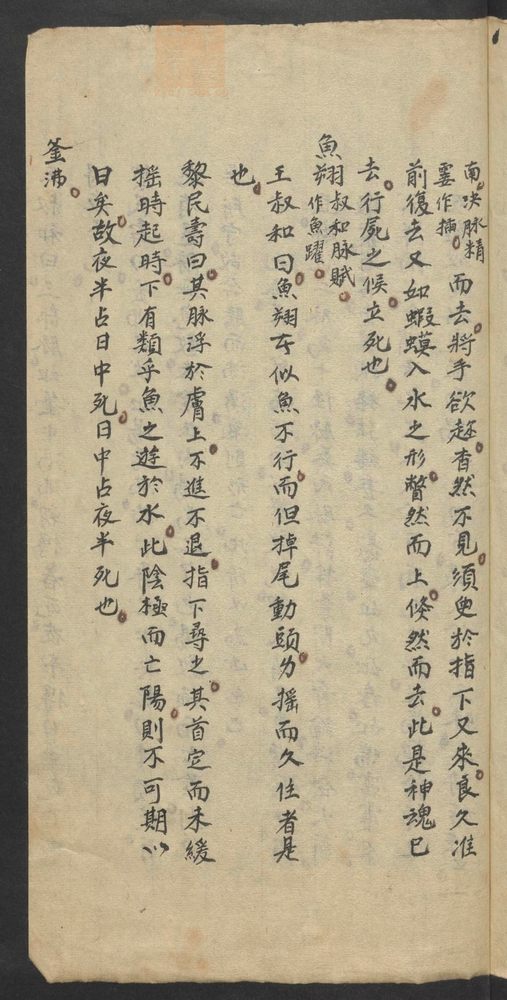 南决脉精
要作捕
而去將手欲趂杳然不見須臾於指下又來良久准
前復去又如蝦蟆入水之形瞥然而上倏然而去此是神魂已
去行屍之候立死也
魚翔
叔和脉賦
作魚躍
王叔和曰魚翔似魚不行而但掉尾動頭身摇而久住者是
也
黎民壽曰其脉浮於膚上不進不退指下尋之其首定而末緩
摇時起時下有類乎魚之遊於水此陰極而亡陽則不可期以
日矣故夜半占日中死日中占夜半死也
釜沸